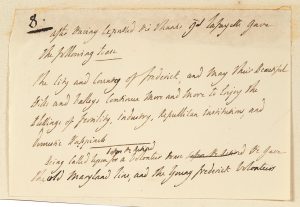 8.
After having repeated his thanks Gl Lafayette gave
the following toast
The City and County of frederick, and may their beautiful
Hills and Valleys continue more and more to Enjoy the
blessings of fertility, Industry, Republican institutions, and
Domestic Happiness
before He Retired
being called upon for a Volunteer toast before He Retired He gave
the old Maryland line, and the Young frederick Volunteers